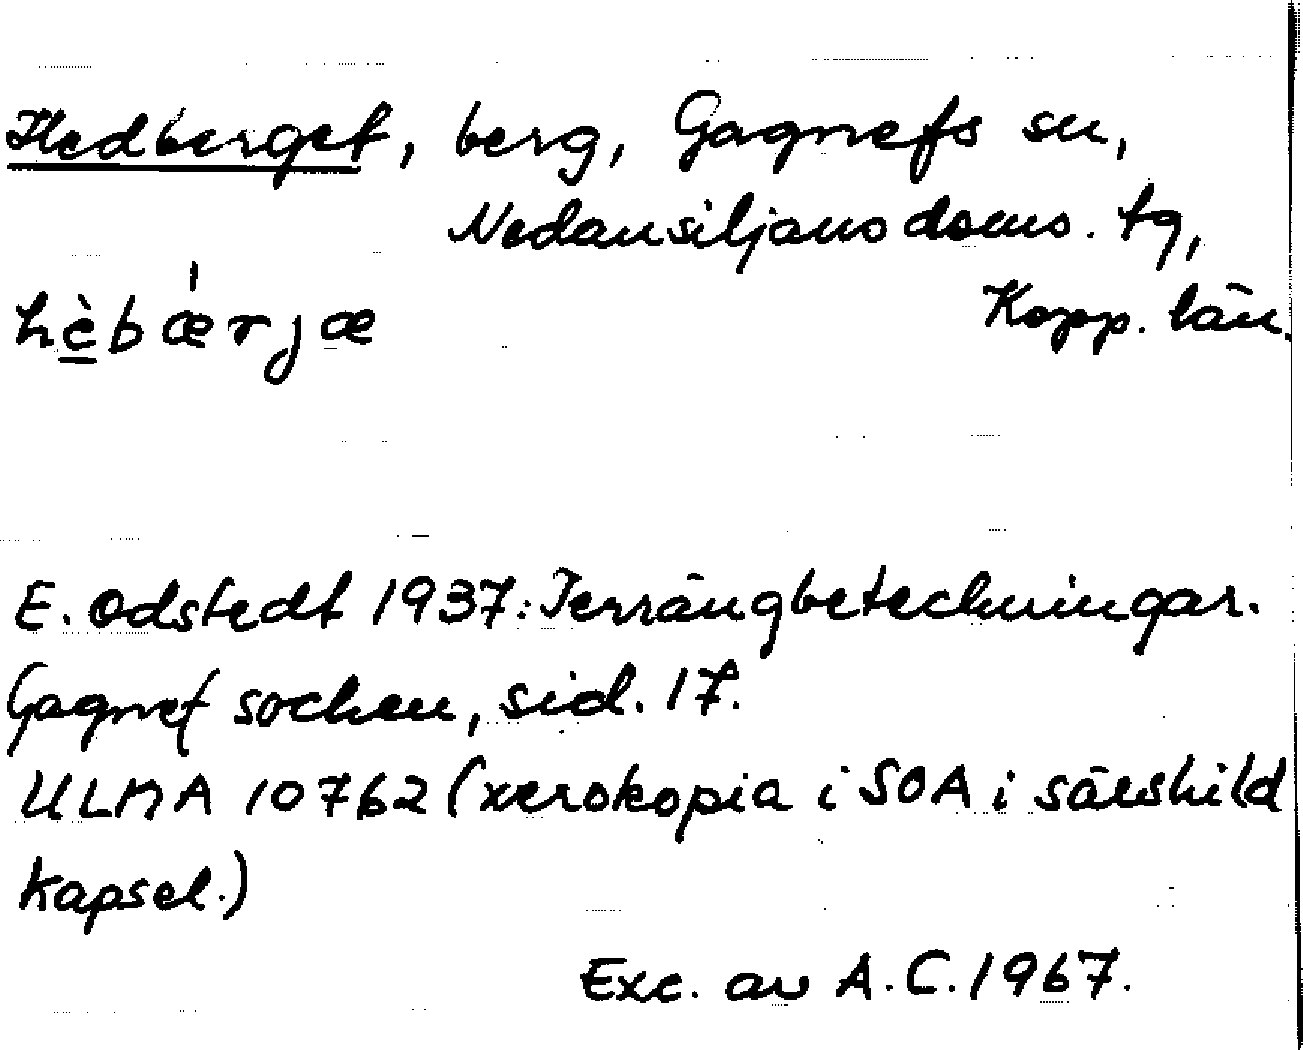 Hedberget, berg, Gagnefs sn,
Nedansiljans doms. tg,
hè̲bǽrjæ
Kopp. län.
E. Odstedt 1937: Terrängbeteckningar.
Gagnef socken, sid. 17.
ULMA 10762 (xerokopia i SOA i särskild
kapsel.)
Exc. av A.C. 1967.